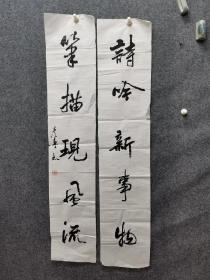 詩吟新事物
筆描現風流